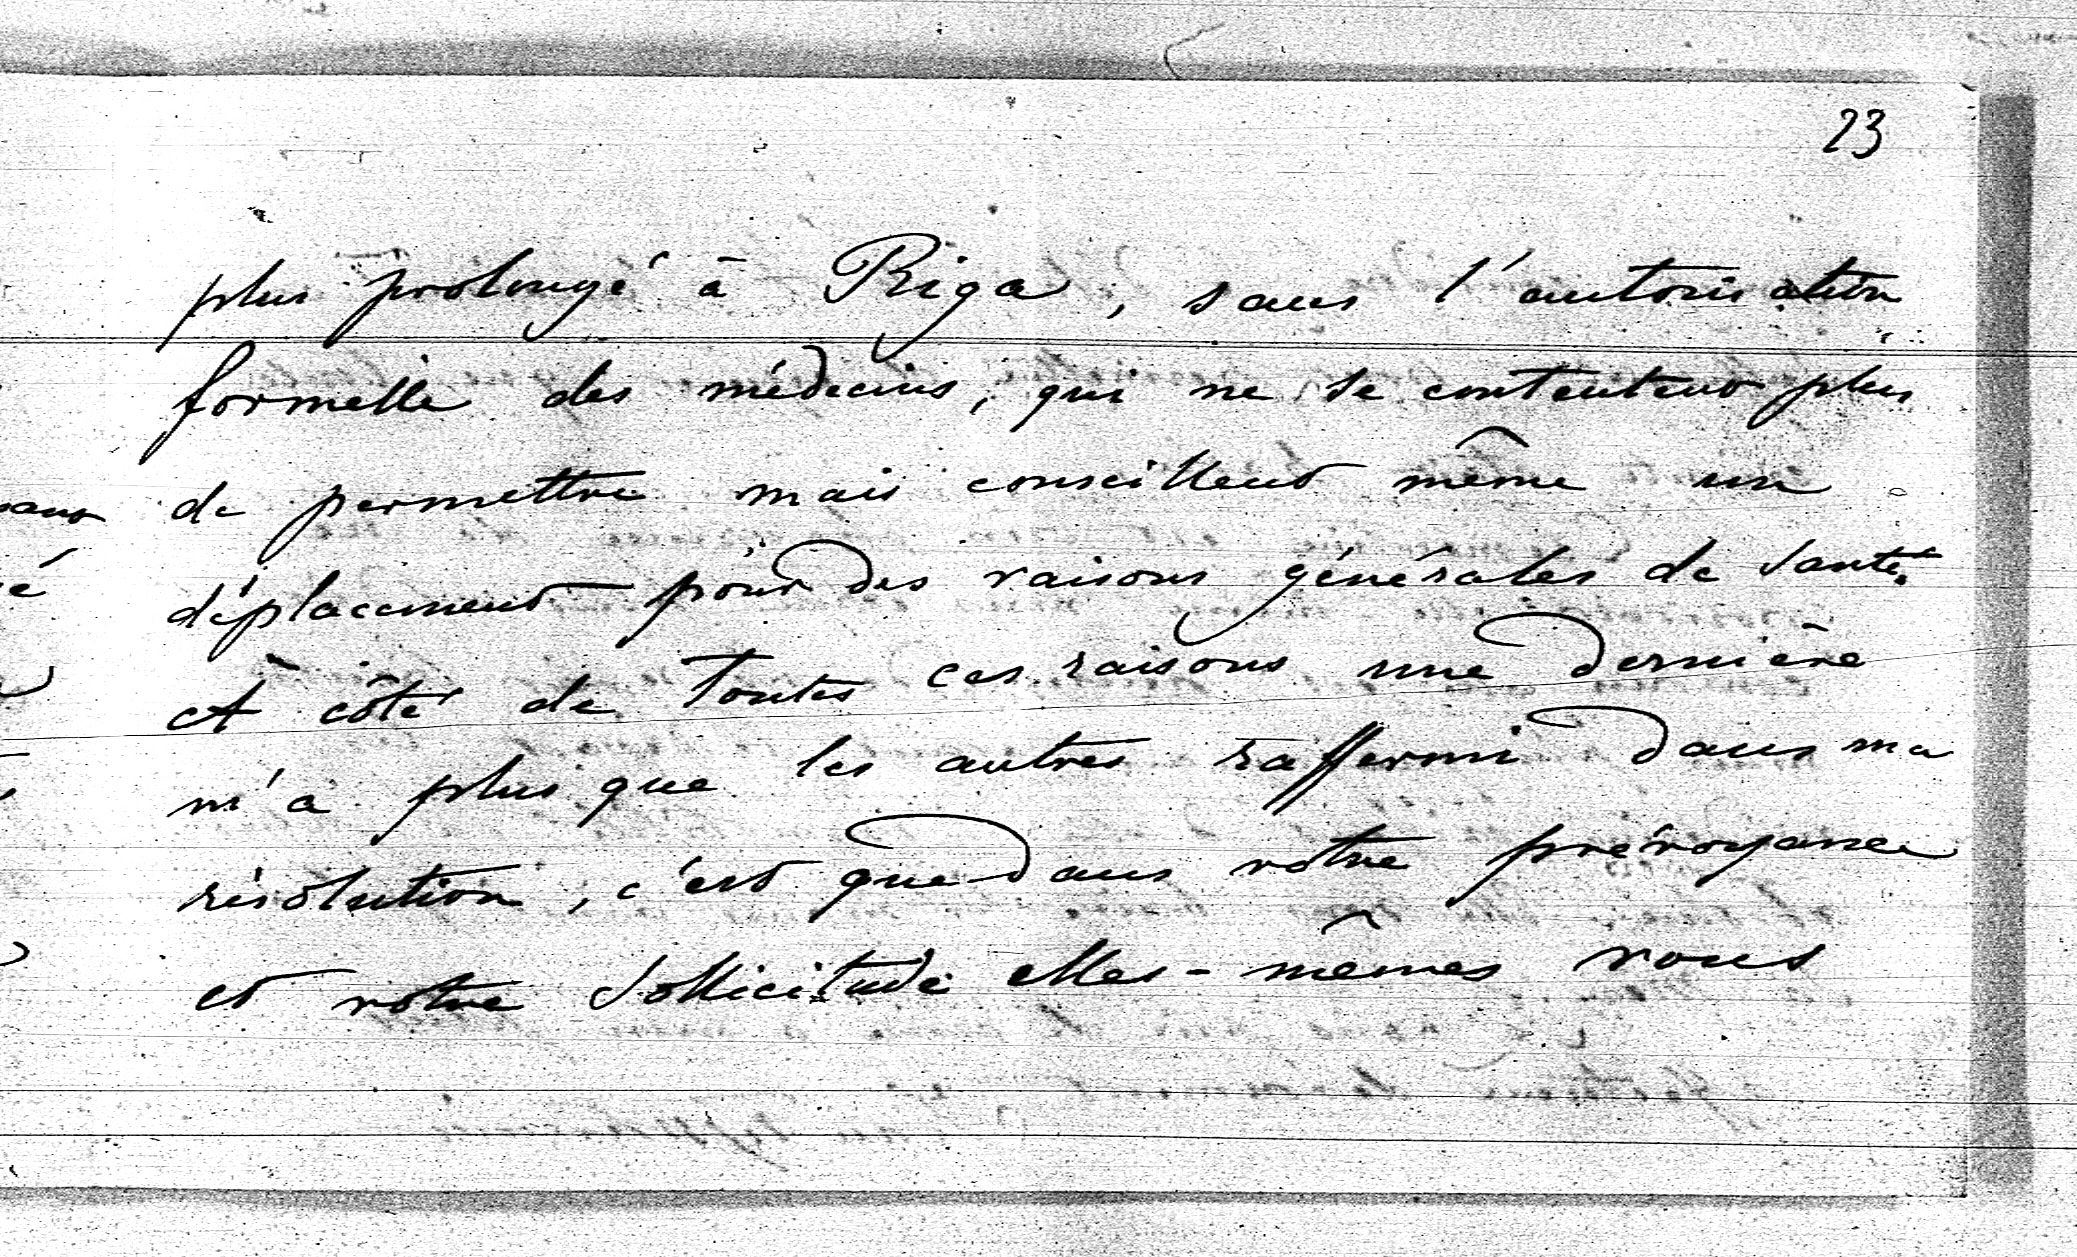 23
plus prolongé à Riga, sans l'autorisation
formelle des médecins, qui ne se contentent plus
de permettre mais conseillent même un
déplacement pour des raisons générales de santé.
A côté de toutes ces raisons une dernière
m'a plus que les autres raffermi dans ma
résolution, c'est que dans votre prévoyance
et votre sollicitude elles-mêmes vous